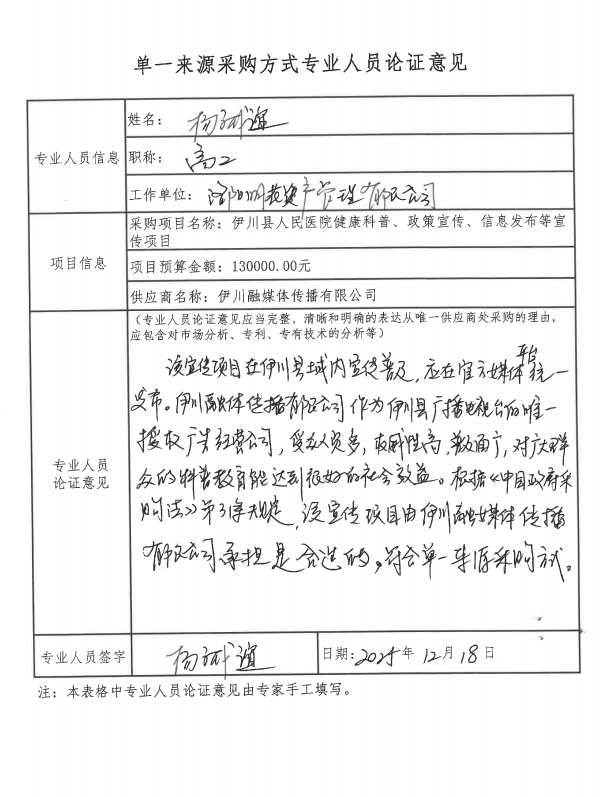 单一来源采购方式专业人员论证意见
专业人员信息
姓名：杨
职称：高工
工作单位：洛阳 管理有限公司
项目信息
采购项目名称：伊川县人民医院健康科普、政策宣传、信息发布等宣
传项目
项目预算金额：130000.00元
供应商名称：伊川融媒体传播有限公司
专业人员
论证意见
（专业人员论证意见应当完整、清晰和明确的表达从唯一供应商处采购的理由，
应包含对市场分析、专利、专有技术的分析等）
该宣传项目在伊川县域内宣传普及，应在官方媒体平台统一
发布。伊川融媒体传播有限公司作为伊川县广播电视台的唯一
授权广告经营公司，受众人员多，权威性高，普及面广，对广大群
众的科普教育能达到很好的社会效益。根据《中国政府采
购法》第31条规定，该宣传项目由伊川融媒体传播
有限公司承担是合适的，符合单一来源采购方式。
专业人员签字
杨
日期：2025年12月18日
注：本表格中专业人员论证意见由专家手工填写。